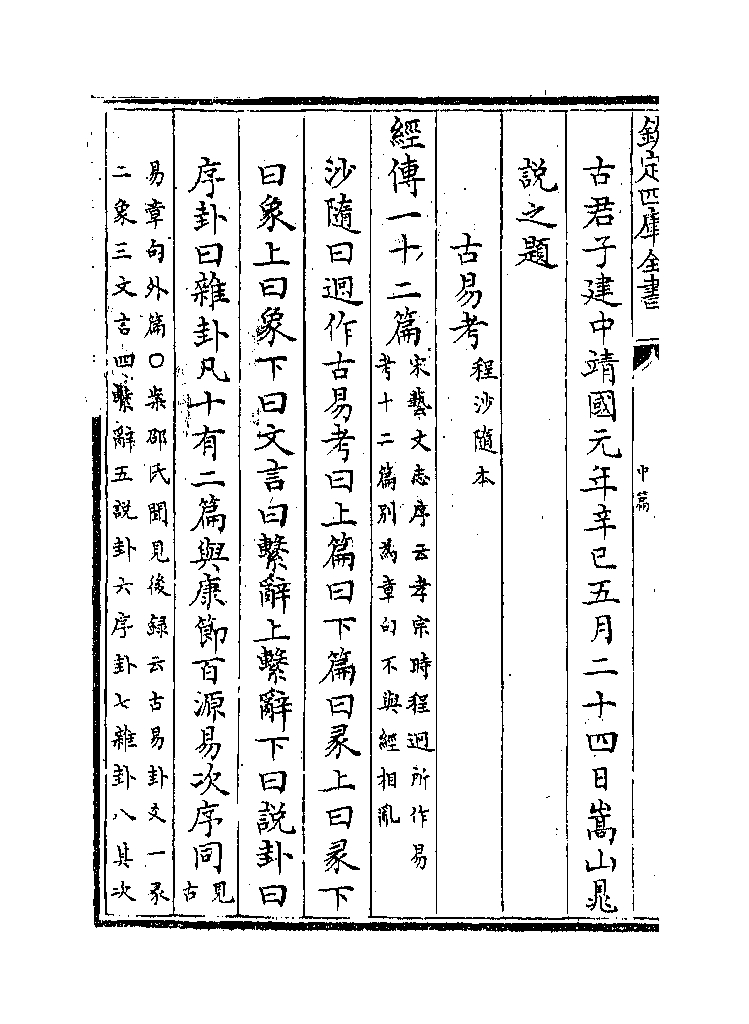 欽定四庫全書
中篇
古君子建中靖國元年辛巳五月二十四日嵩山晁
說之題
古易考程沙隨本
經傳一十二篇宋藝文志序云孝宗時程迥所作易
考十二篇別為章句不與經相亂
沙隨曰迥作古易考曰上篇曰下篇曰彖上曰彖下
曰象上曰象下曰文言曰繫辭上繫辭下曰說卦曰
序卦曰雜卦凡十有二篇與康節百源易次序同見
古
易章句外篇○案邵氏聞見後録云古易卦爻一彖
二象三文言四繫辭五說卦六序卦七雜卦八其次